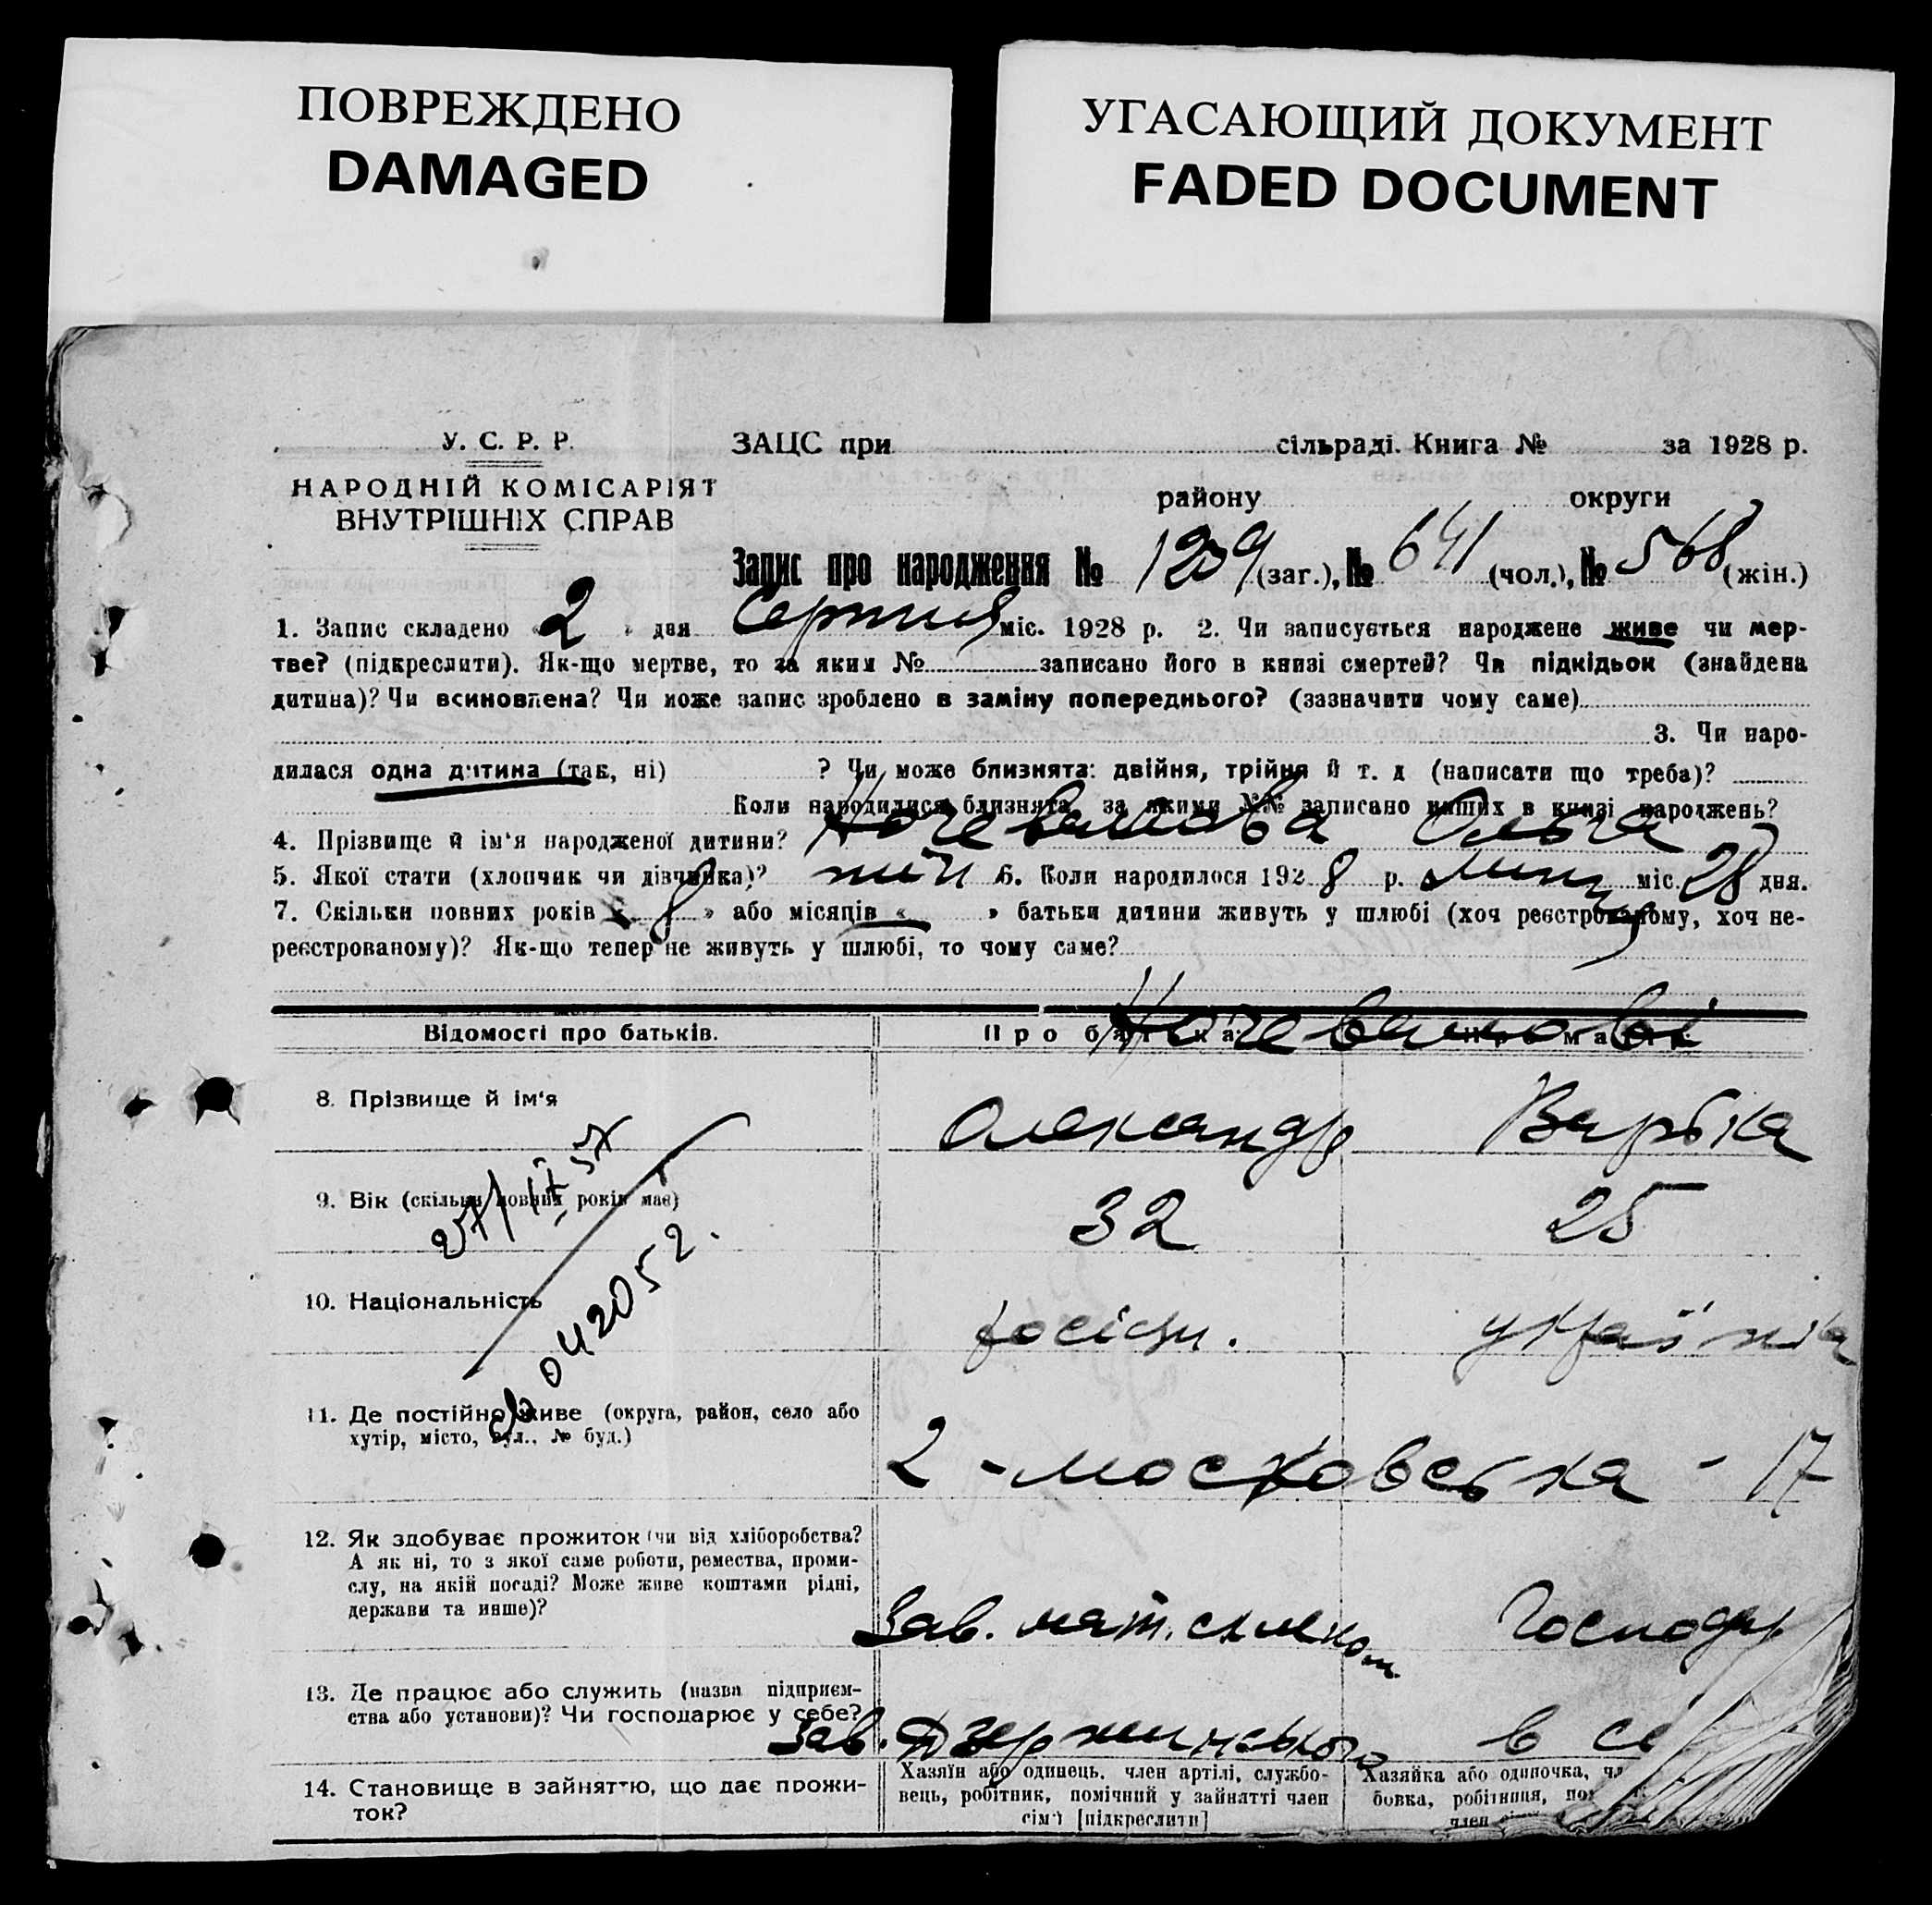 ПОВРЕЖДЕНО
DAMAGED
УГАСАЮЩИЙ ДОКУМЕНТ
FADED DOCUMENT
У. С. Р. Р.
НАРОДНІЙ КОМІСАРІЯТ
ВНУТРІШНІХ СПРАВ
ЗАЦС при сільраді. Книга № за 1928 р.
району округи
Запис про народження № 1209 (заг.), № 641 (чол.), № 568 (жін.)
1. Запис складено « 2 » дня Серпня міс. 1928 р. 2. Чи записується народжене живе чи мер-
тве? (підкреслити). Як-що мертве, то за яким № записано його в книзі смертей? Чи підкідьок (знайдена
дитина)? Чи всиновлена? Чи може запис зроблено в заміну попереднього? (зазначити чому саме)
3. Чи наро-
дилася одна дитина (так, ні) ? Чи може близнята: двійня, трійня й т. д (написати що треба)?
Коли народилися близнята, за якими №№ записано инших в книзі народжень?
4. Прізвище й ім'я народженої дитини? Ольга
5. Якої стати (хлопчик чи дівчинка)? 6. Коли народилося 192 8 р. Липня міс. 28 дня.
7. Скільки повних років « 8 » або місяців « » батьки дитини живуть у шлюбі (хоч реєстрованому, хоч не-
реєстрованому)? Як-що тепер не живуть у шлюбі, то чому саме?
Відомості про батьків. Про батька Про матір
8. Прізвище й ім'я Олександр
9. Вік (скільки повних років має) 32 25
042052.
10. Національність росіян.
11. Де постійно живе (округа, район, село або
хутір, місто, вул., № буд.)
2 - московська - 17
12. Як здобуває прожиток (чи від хліборобства?
А як ні, то з якої саме роботи, ремества, проми-
слу, на якій посаді? Може живе коштами рідні,
держави та инше)?
Зав. мат. складом Господар
13. Де працює або служить (назва підприєм-
ства або установи)? Чи господарює у себе?
Зав. Дзержинського в се
14. Становище в зайняттю, що дає прожи-
ток?
Хазяїн або одинець, член артілі, службо-
вець, робітник, помічний у зайнятті член
сім'ї [підкреслити]
Хазяйка або одиночка, чл
бовка, робітниця, по
член